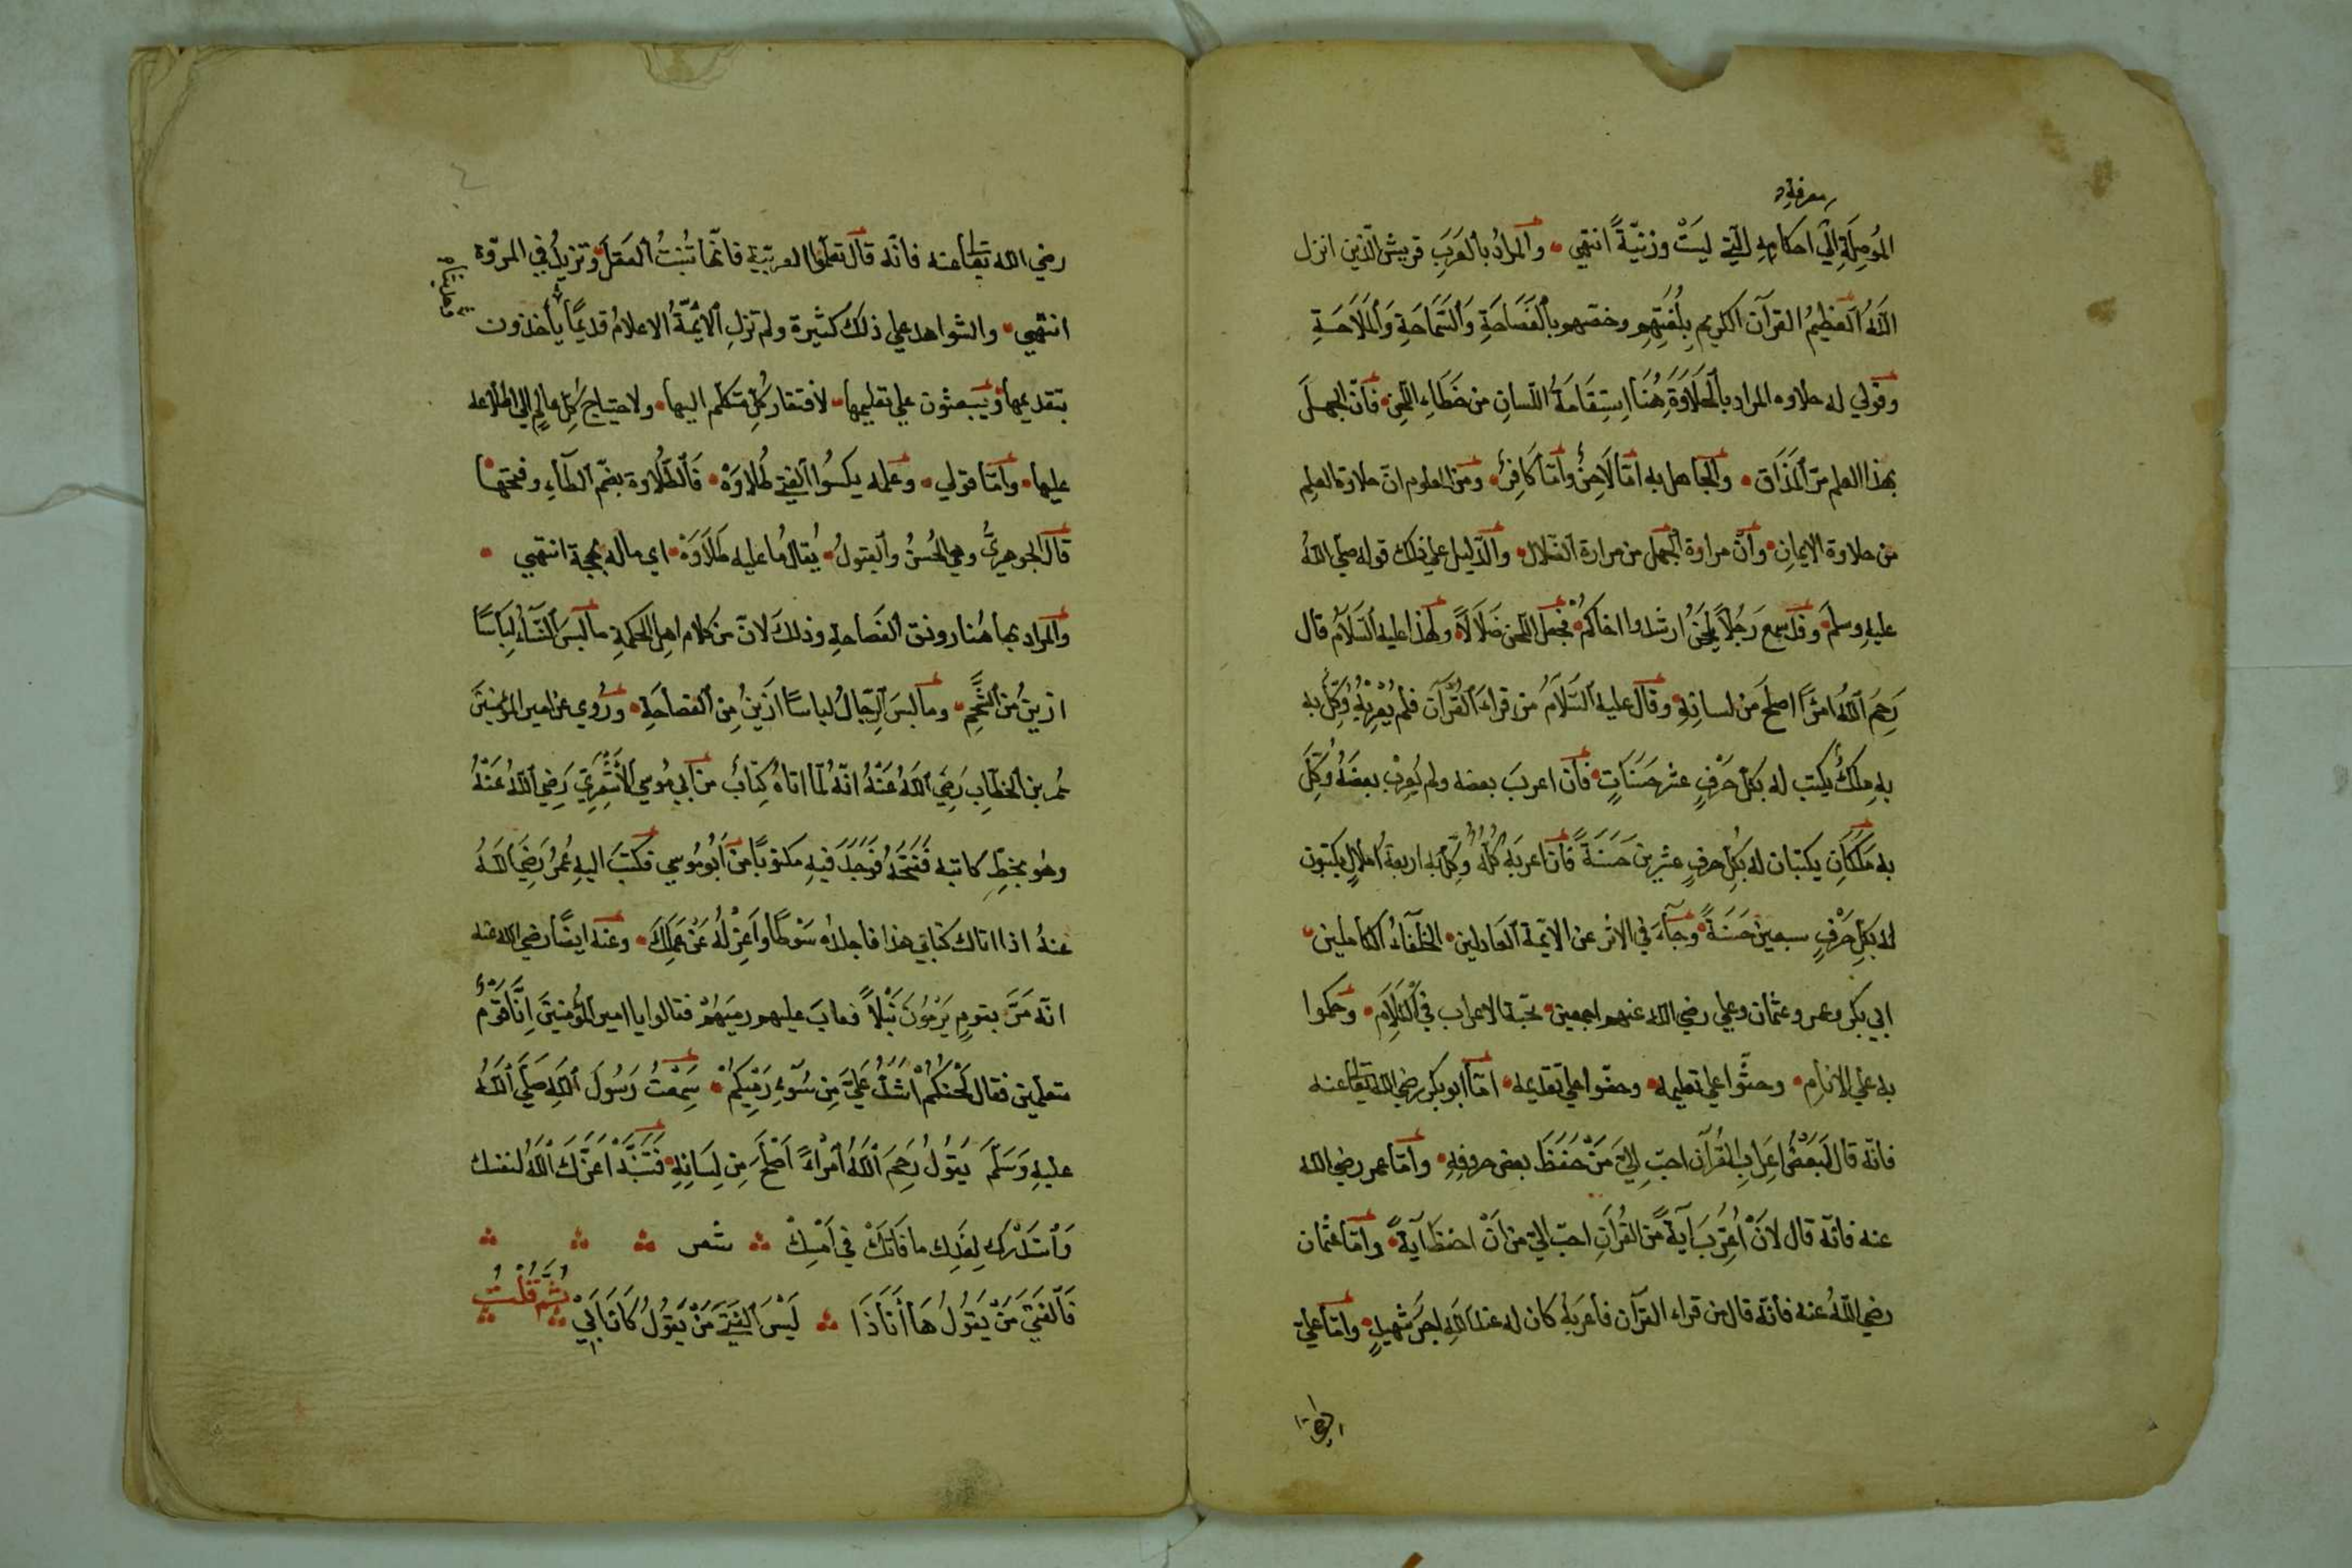 معرفة
الموصلة الى احكامه التي ليست وزنيّةً انتهى • والمراد بالعرب قريش الّذين انزل
اللّه العظيم القرآن الكريم بلغتهم وخصّهم بالفصاحة والسّماحة والملاحة
وقولي له حلاوه المراد بالحلاوة هنا استقامة اللّسان من خطاء اللّحن • فانّ الجهل
بهذا العلم مرّ المذاق • والجاهل به امّا لاحنٌ وامّا كافرٌ • ومن المعلوم انّ حلاوة العلم
من حلاوة الايمان • وانّ مراوة الجهل من مرارة الضّلال • والدّليل على ذلك قوله صلّى اللّه
عليه وسلّم • وقد سمع رجلاً يلحن ارشدوا اخاكم • فجعل اللّحن ضلالاً • ولهذا عليه السّلام قال
رحم اللّه امرًأ اصلح من لسانه • وقال عليه السّلام من قراء القرآن فلم يعربه وكّل به
به ملكٌ يكتب له بكلّ حرفٍ عشر حسناتٍ • فان اعرب بعضه ولم يعرب بعضه وكّل
به ملكان يكتبان له بكلّ حرفٍ عشرين حسنةً فان اعربه كلّه وكّل به اربعة املاكٍ يكتبون
له بكلّ حرفٍ سبعين حسنةً • وجآء في الاثر عن الايمّة العادلين • الخلفآء الكاملين •
ابي بكر وعمر وعثمان وعلي رضي اللّه عنهم اجمعين • محبّة الاعراب في الكلام • وحكموا
به على الانام • وحثّوا على تعليمه • وحضّوا على تقديمه • امّا ابو بكر رضي اللّه تعالى عنه
فانّه قال لبعض اعراب القرآن احبّ اليّ من حفظ بعض حروفه • وامّا عمر رضي اللّه
عنه فانّه قال لان اعرب آيةً من القرآن احبّ اليّ من ان احفظ آيةً • وامّا عثمان
رضي اللّه عنه فانّه قال من قراء القرآن فأعربه كان له عند اللّه اجر شهيدٍ • وامّا عليّ
رضي الله تعالى عنه فانّه قال تعلّموا العربيّة فانّها تثبت العقل • وتزيد في المروّة
انتهى • والشواهد على ذلك كثيرة ولم تزل الايمّة الاعلام قديمًا يأخذون
بتقديمها • ويبعثون على تعليمها • لافتقار كلّ متكلّم اليها • ولاحتياج كلّ عالمٍ الى اطّلاعه
عليها • وامّا قولي • وعلمه يكسوا الفتى طلاوة • فالطّلاوة بضمّ الطّآء وفتحها
قال الجوهريّ وهي الحسن والقبول • يقال ما عليه طلاوة • اي ماله بهجة انتهى •
والمراد بها هنا رونق الفصاحة وذلك لانّ من كلام اهل الحكمة ما لبس النّسآء لباسًا
ازين من الشّحم • وما لبس الرّجال لباسًا ازين من الفصاحة • وروي عن امير المؤمنين
عمر بن الخطّاب رضي اللّه عنه انّه لمّا اتاه كتابٌ من ابي موسى الاشعريّ رضي اللّه عنه
وهو بخطّ كاتبه ففتحه فوجد فيه مكتوبًا من ابو موسى فكتب اليه عمر رضي اللّه
عنه اذا اتاك كتابي هذا فاجلده سوطًا واعزله عن عملك • وعنه ايضًا رضي الله عنه
انّه مرّ بقومٍ يرمون نبلاً فعاب عليهم رميهم فقالوا يا امير المؤمنين انّا قومٌ
متعلمين فقال لحنكم اشدّ عليّ من سوء رميكم • سمعت رسول اللّه صلّى اللّه
عليه وسلّم يقول رحم اللّه امرأً اصلح من لسانه • فتنبّه اعزّك اللّه لنفسك
واستدرك لغدك ما فاتك في امسك شعر
فالفتى من يقول ها أنا ذا ليس الفتى من يقول كان ابي ثمّ قلت